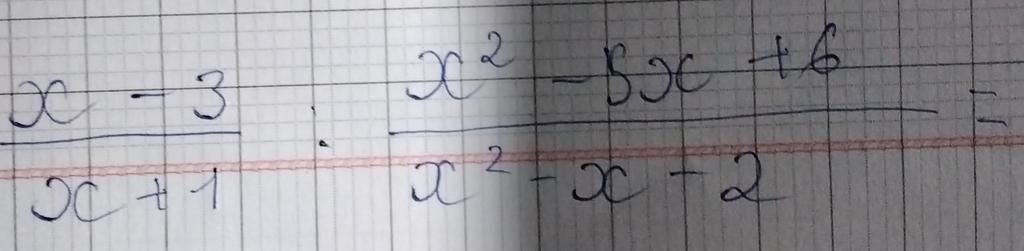 x - 3 / x + 1 : x² - 5x + 6 / x² - x - 2 =